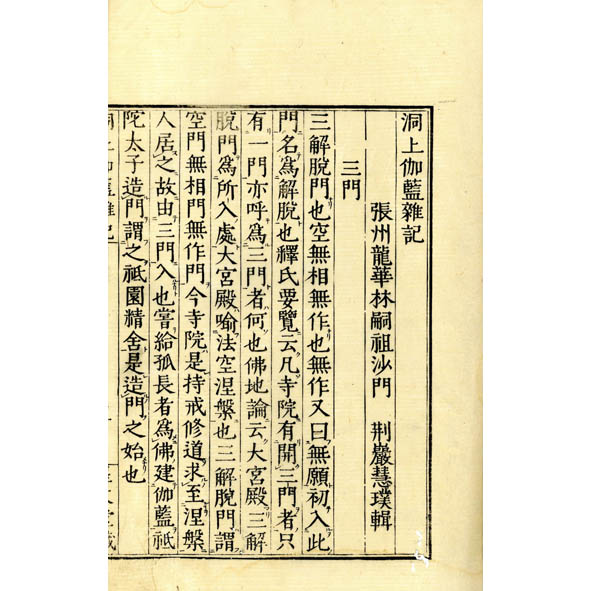 洞上伽藍雜記
張州龍華林嗣祖沙門 荆巖慧璞輯
三門
三解脫門也空無相無作也無作又曰無願初入此
門名爲解脫也釋氏要覽云凡寺院有開三門者只
有一門亦呼爲三門者何也佛地論云大宮殿三解
脫門爲所入處大宮殿喻法空涅槃也三解脫門謂
空門無相門無作門今寺院是持戒修道求至涅槃
人居之故由三門入也嘗給孤長者爲佛建伽藍祗
陀太子造門謂之祗園精舍是造門之始也